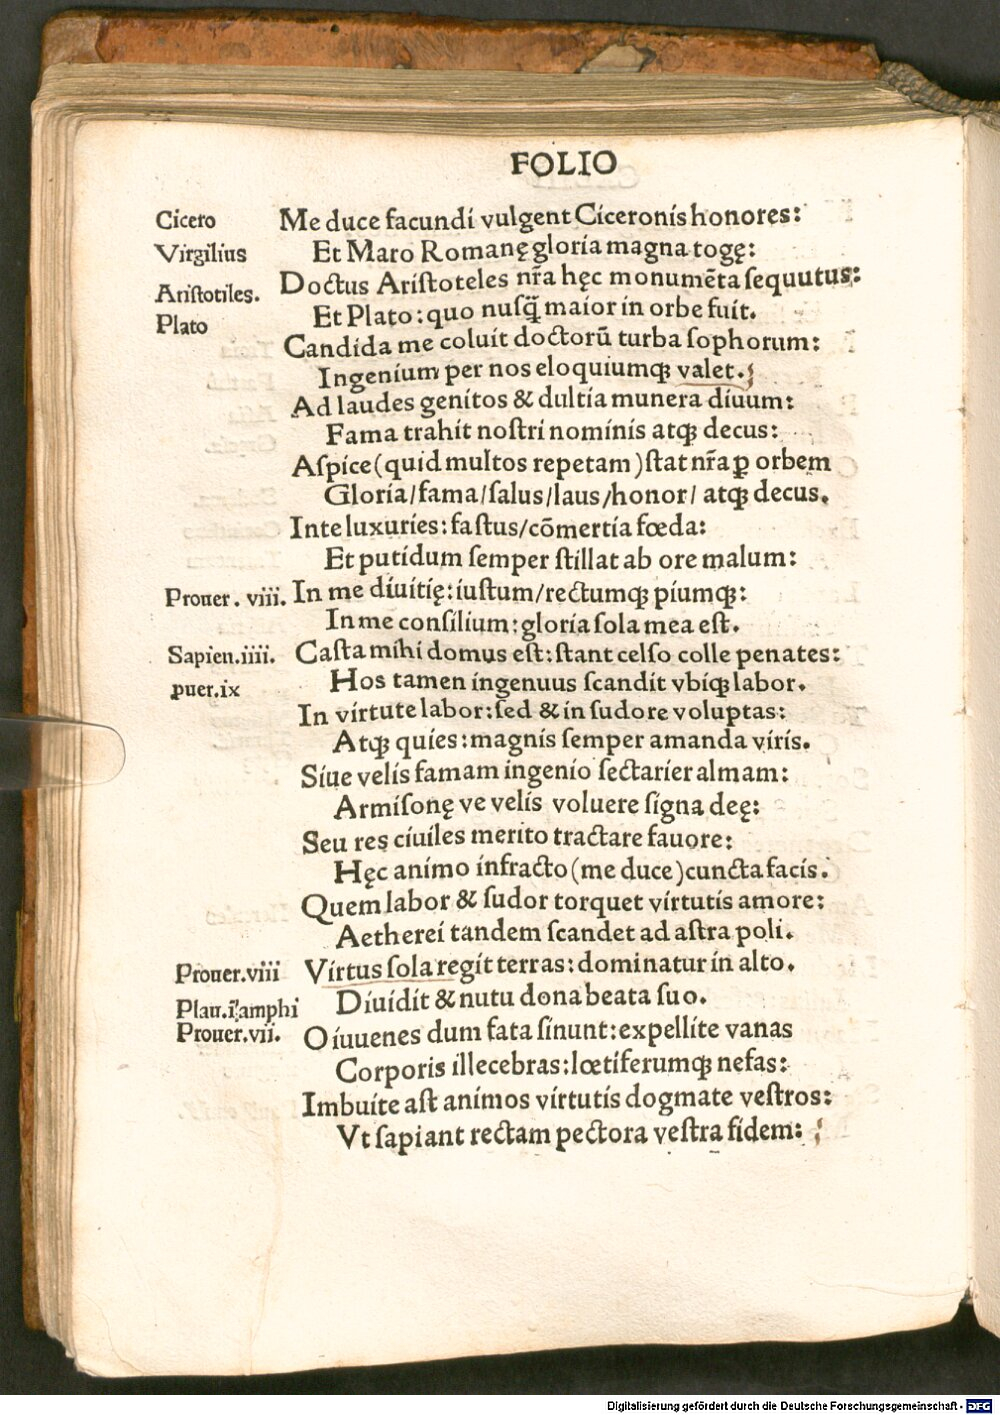 FOLIO
Cicero Me duce facundi vulgent Ciceronis honores:
Virgilius Et Maro Romanę gloria magna togę:
Aristotiles. Doctus Aristoteles nr̄a hęc monumēta sequutus:
Plato Et Plato: quo nusq̄ maior in orbe fuit.
Candida me coluit doctorū turba sophorum:
Ingenium per nos eloquiumqꝫ valet.
Ad laudes genitos & dultia munera diuum:
Fama trahit nostri nominis atqꝫ decus:
Aspice (quid multos repetam) stat nr̄a ꝑ orbem
Gloria/fama/salus/laus/honor/ atqꝫ decus.
Inte luxuries: fastus/cōmertia fœda:
Et putidum semper stillat ab ore malum:
Prouer. viii. In me diuitię: iustum/rectumqꝫ piumqꝫ:
In me consilium: gloria sola mea est.
Sapien.iiii. Casta mihi domus est: stant celso colle penates:
ꝓuer.ix Hos tamen ingenuus scandit vbiqꝫ labor.
In virtute labor: sed & in sudore voluptas:
Atqꝫ quies: magnis semper amanda viris.
Siue velis famam ingenio sectarier almam:
Armisonę ve velis voluere signa deę:
Seu res ciuiles merito tractare fauore:
Hęc animo infracto (me duce) cuncta facis.
Quem labor & sudor torquet virtutis amore:
Aetherei tandem scandet ad astra poli.
Prouer.viii Virtus sola regit terras: dominatur in alto.
Plau.ī amphi Diuidit & nutu dona beata suo.
Prouer.vii. O iuuenes dum fata sinunt: expellite vanas
Corporis illecebras: lœtiferumqꝫ nefas:
Imbuite ast animos virtutis dogmate vestros:
Vt sapiant rectam pectora vestra fidem:
Digitalisierung gefördert durch die Deutsche Forschungsgemeinschaft - DFG